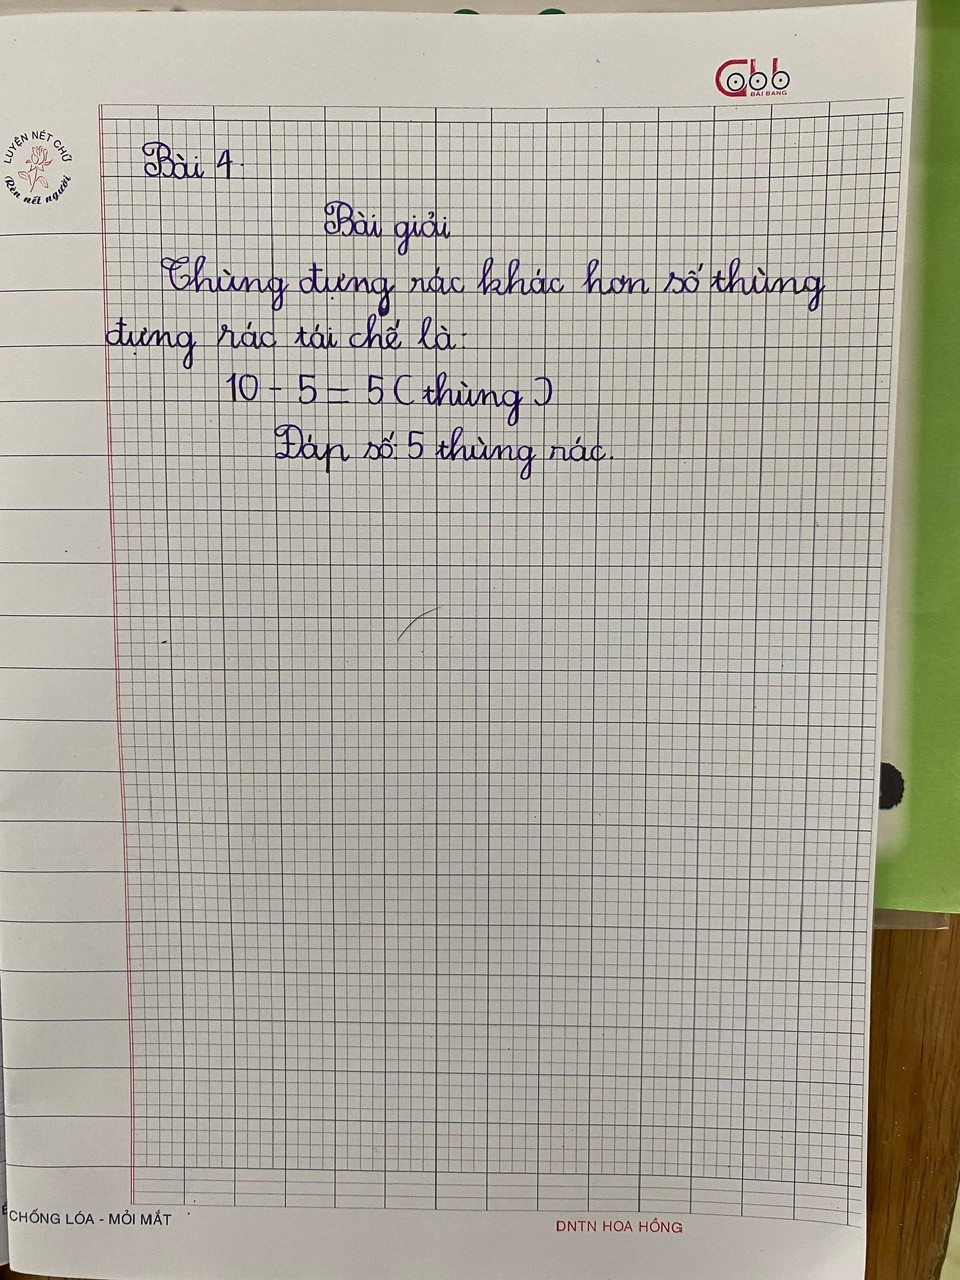 Cobb
BAI BANG
LUYỆN NÉT CHỮ
Rèn nết người
Bài 4.
Bài giải
Thùng đựng rác khác hơn số thùng
đựng rác tái chế là:
10 - 5 = 5 ( thùng )
Đáp số: 5 thùng rác.
CHỐNG LÓA - MỎI MẮT
DNTN HOA HỒNG